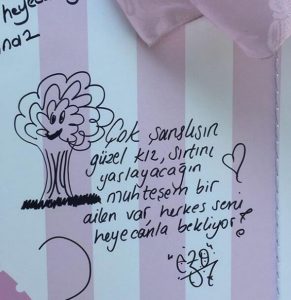 heyecan
Çok şanslısın
güzel kız, sırtını
yaslayacağın
muhteşem bir
ailen var, herkes seni
heyecanla bekliyor